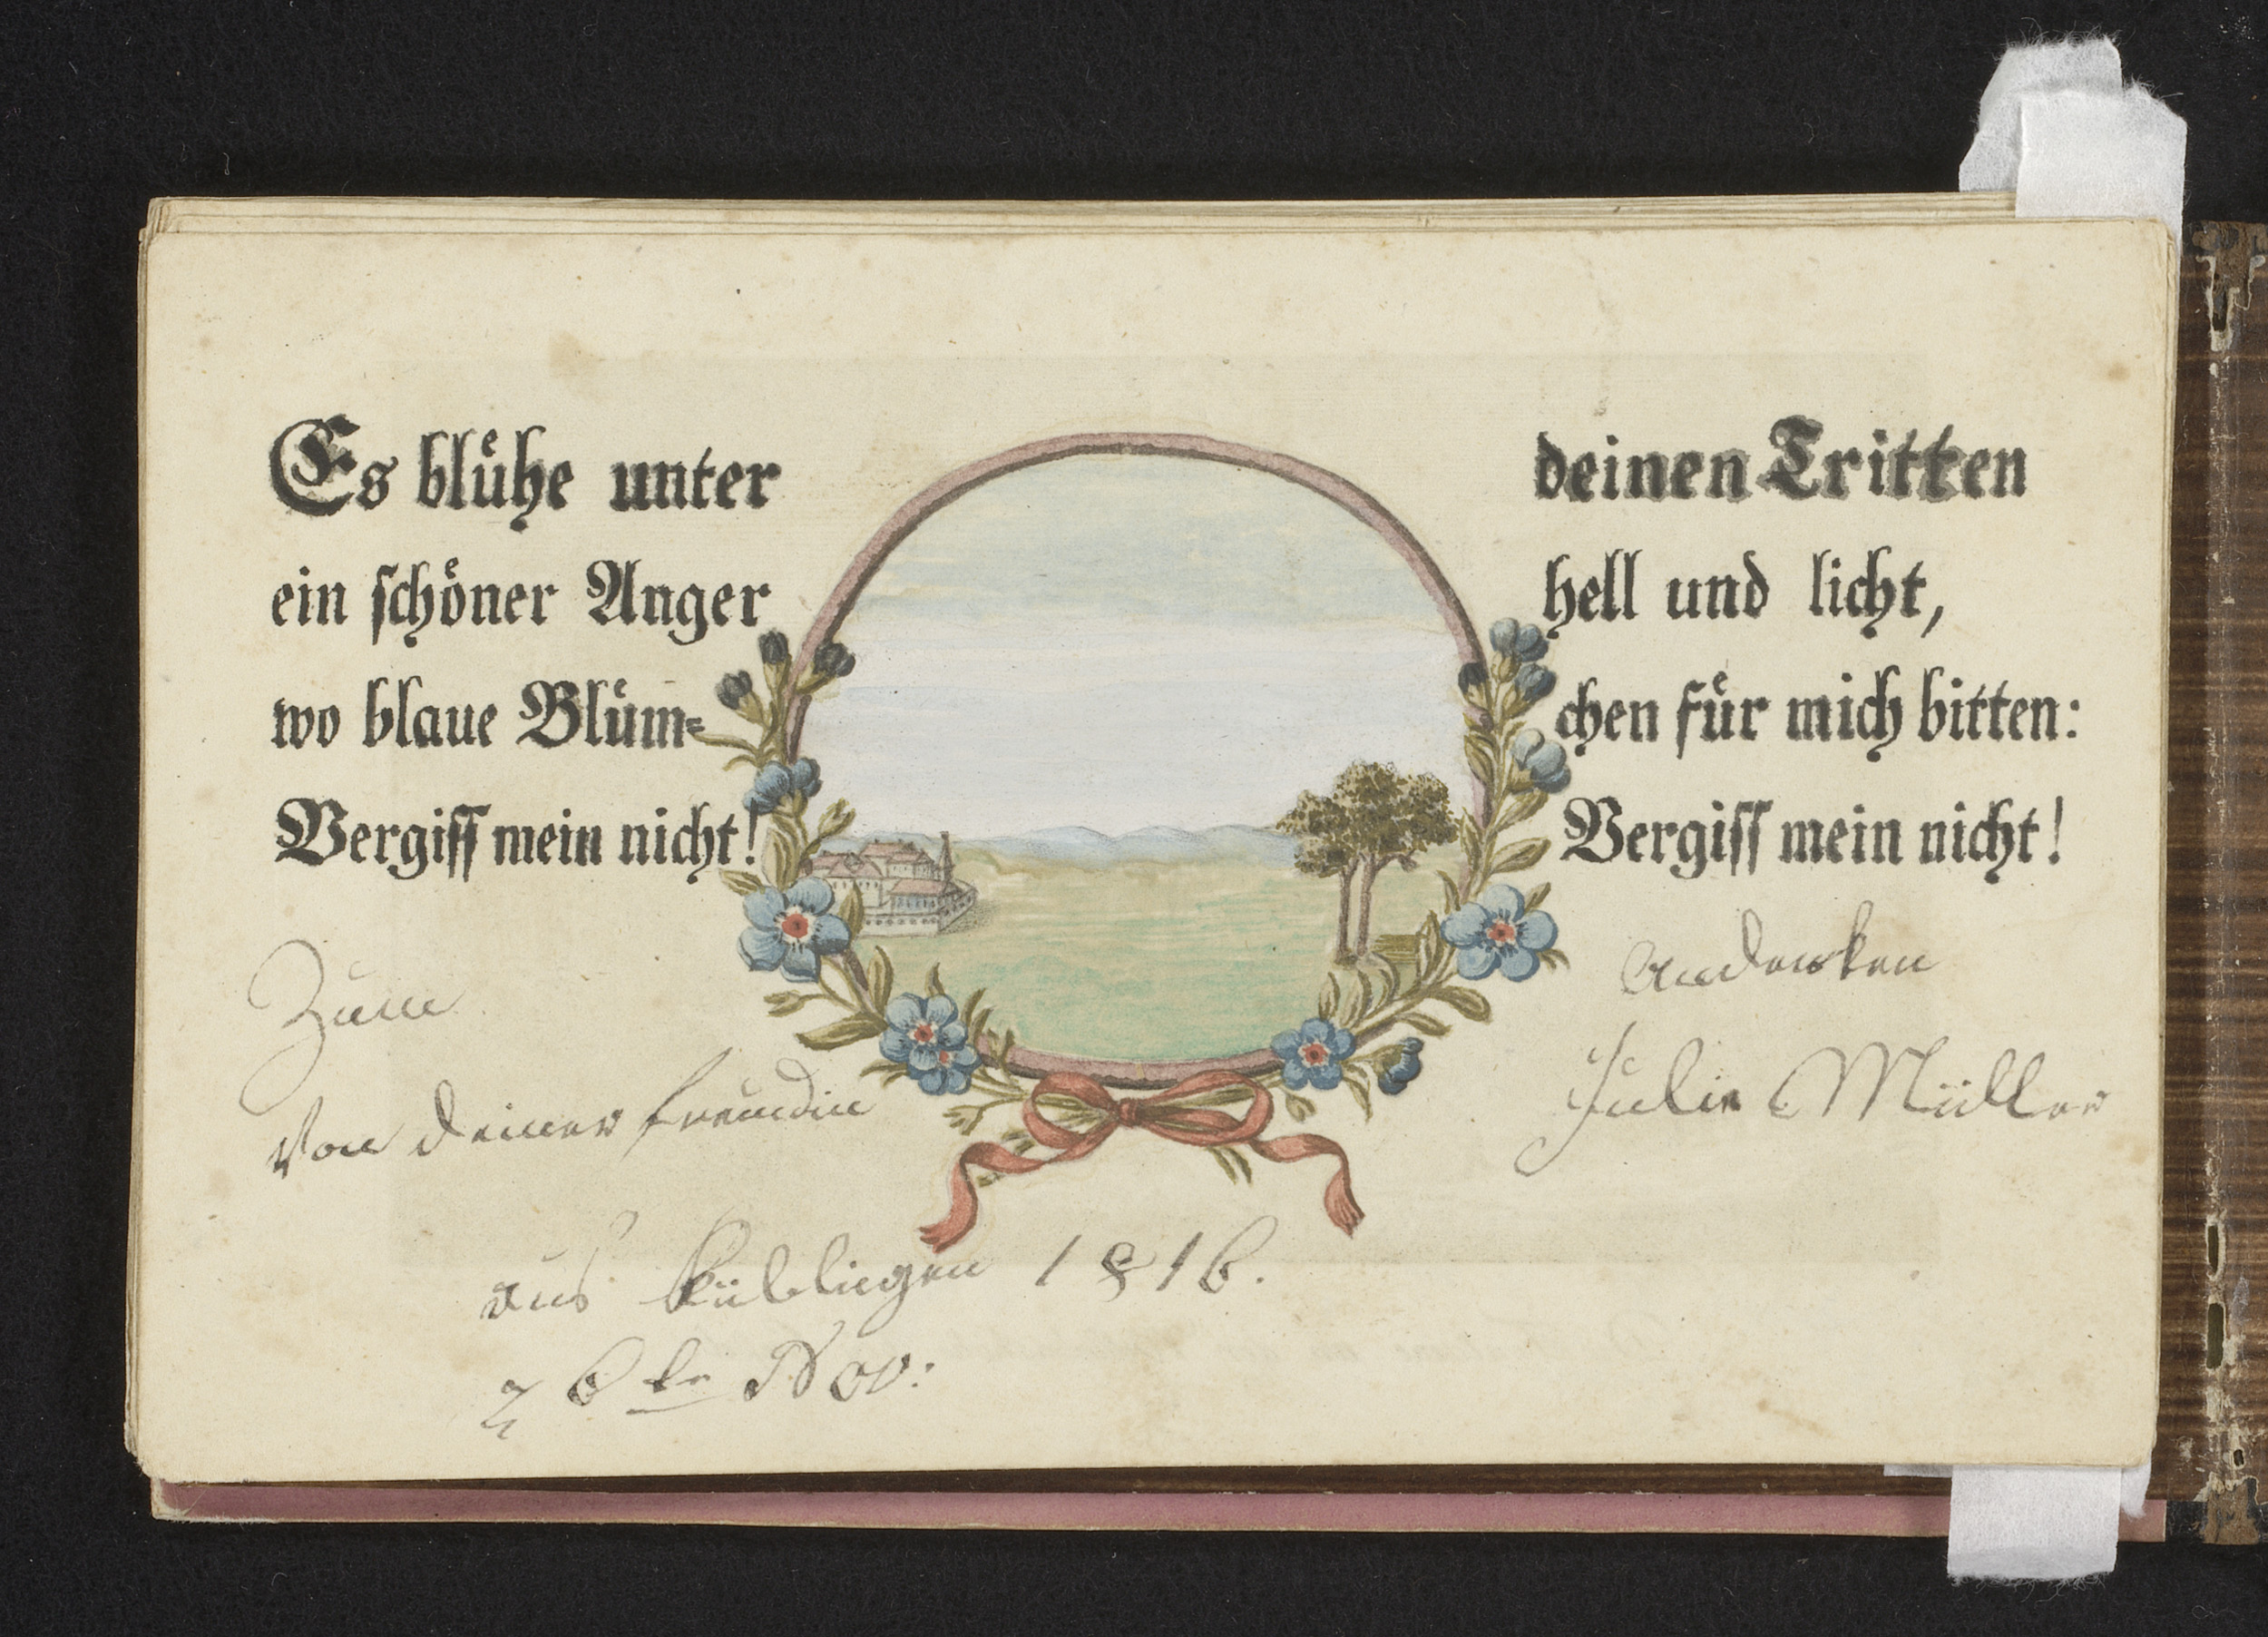 Es blühe unter deinen Tritten
ein schöner Anger hell und licht,
wo blaue Blüm= chen für mich bitten:
Vergiss mein nicht! Vergiss mein nicht!
Zum Andenken
Von deiner freundin Julie Müller
aus 1816.
26te Nov: